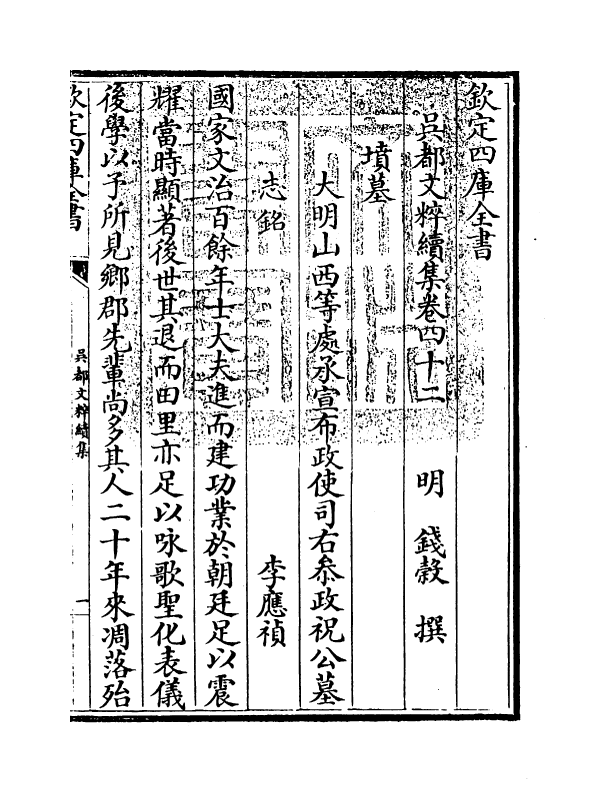 欽定四庫全書
吳都文粹續集卷四十二
明　錢榖　撰
墳墓
大明山西等處承宣布政使司右叅政祝公墓
志銘　李應禎
國家文治百餘年士大夫進而建功業於朝廷足以震
耀當時顯著後世其退而田里亦足以咏歌聖化表儀
後學以予所見鄉郡先輩尚多其人二十年來凋落殆
欽定四庫全書
吳都文粹續集
一